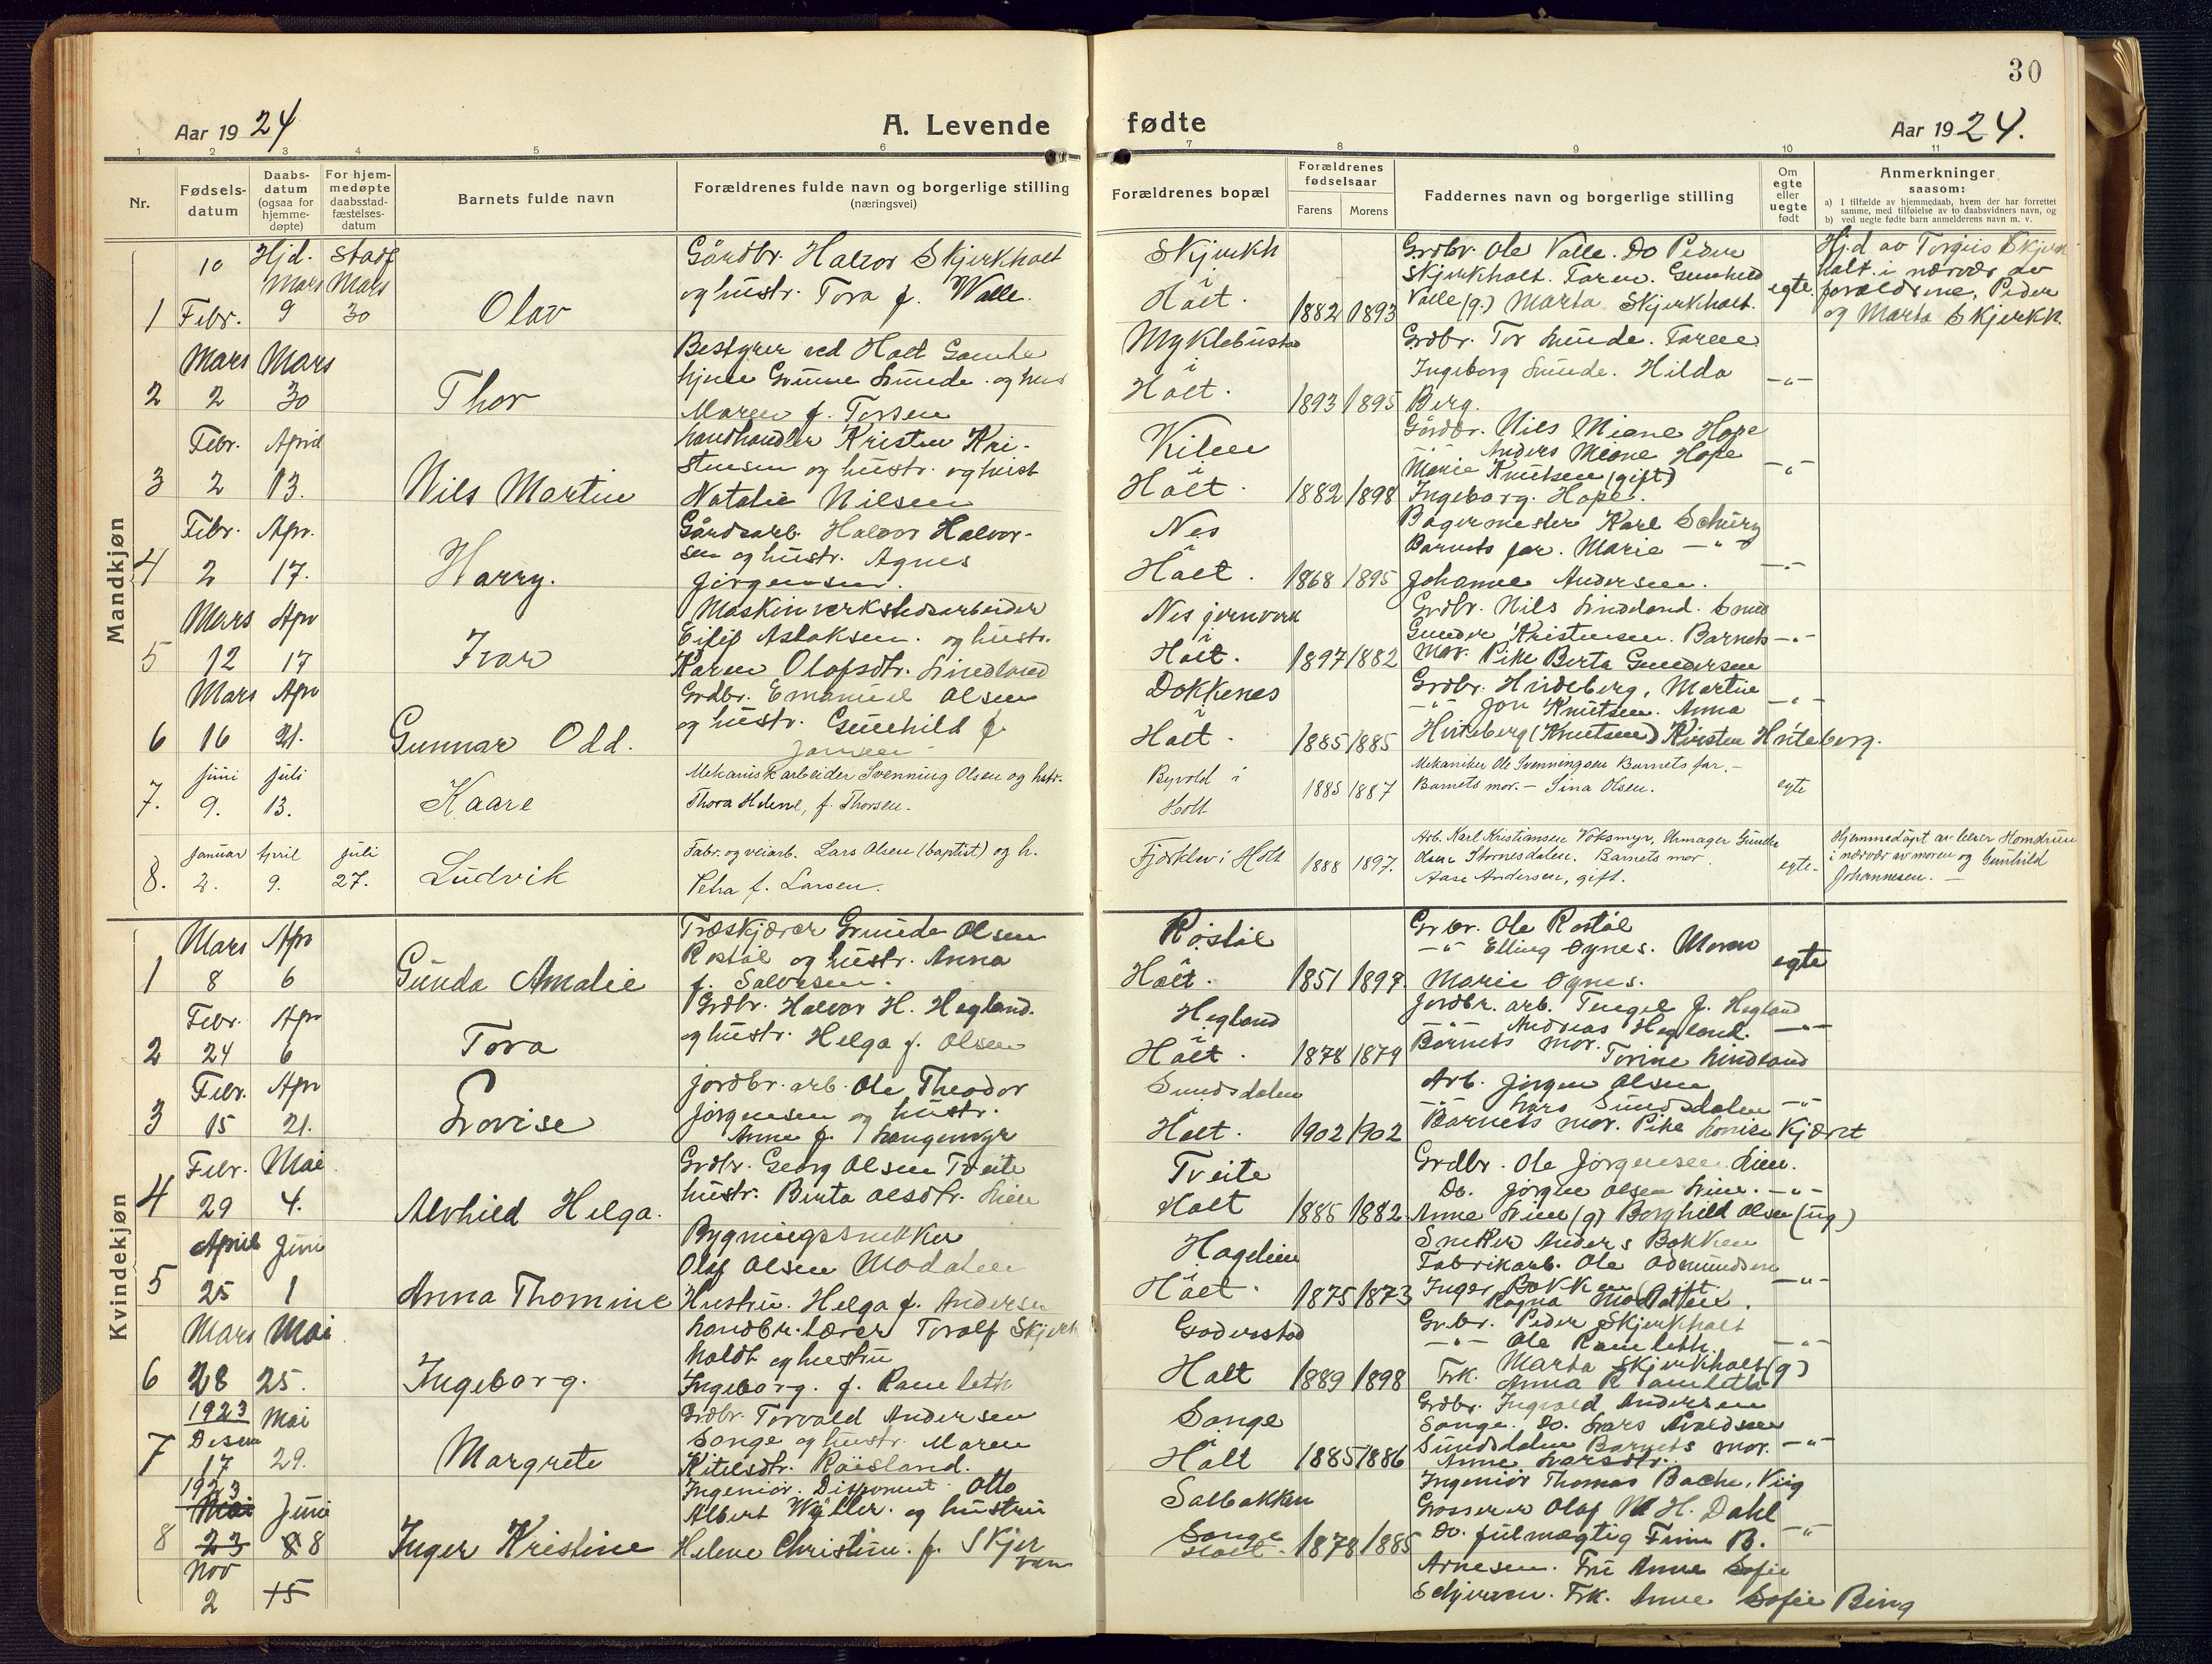 30
Aar 1924
A. Levende fødte
Aar 1924.
1 2 3 4 5 6 7 8 9 10 11
Nr.
Fødsels-datum
Daabs-datum (ogsaa for hjemme-døpte)
For hjem-medøpte daabsstad-fæstelses-datum
Barnets fulde navn
Forældrenes fulde navn og borgerlige stilling
(næringsvei)
Forældrenes bopæl
Forældrenes fødselsaar
Farens Morens
Faddernes navn og borgerlige stilling
Om egte eller uegte født
Anmerkninger
saasom:
a) I tilfælde av hjemmedaab, hvem der har forrettet samme, med tilføielse av to daabsvidners navn, og
b) ved uegte fødte barn anmelderens navn m. v.
Mandkjøn
1 10 Febr. Hjd. Mars 9 Stadf Mars 30
Olav
Gårdbr. Halvor Skjerkholt
og hustr. Tora f. Valle.
Skjerkh
i
Holt. 1882 1893
Grdbr. Ole Valle. Do Peder
Skjerkholt. Faren. Gunhild
Valle (g.) Marta Skjerkholt.
egte.
Hjd av Torgius Skjerk
holt i nærvær av
forældrene, Peder
og Marta Skjerkh.
2 Mars 2 Mars 30
Thor
Bestyrer ved Holt Gamle
hjem Gunne Lunde. og hus
Maren f. Torsen
Myklebustad
i
Holt. 1893 1895
Grdbr. Tor Lunde. Faren
Ingeborg Lunde. Hilda
Berg.
-"-
3 Febr. 2 April 13.
Nils Martin
Landhandler Kristen Kri-
stensen og hustr.
Natalie Nilsen
Kilen
i
Holt. 1882 1898
Gårdbr. Nils Miane Hope
-"- Anders Miane Hope
Marie Knutsen (gift)
Ingeborg. Hope.
-"-
4 Febr. 2 Apr. 17.
Harry.
Gårdsarb. Halvor Halvor-
sen og hustr. Agnes
Jørgensen.
Nes
i
Holt. 1868 1895
Bagermester Karl Schürz
Barnets far. Marie -"-
Johanne Andersen.
-"-
5 Mars 12 Apr 17
Ivar
Maskinverkstedsarbeider
Eilif Aslaksen. og hustr.
Karen Olafsdtr. Lindland
Nes jernverk
i
Holt. 1897 1882
Grdbr. Nils Lindland. Smed
Gunder Kristensen. Barnets
mor. Pike Berta Gundersen
-"-
6 Mars 16 Apr 21.
Gunnar Odd.
Grdbr. Emanuel Olsen
og hustr. Gunhild f.
Jansen
Dokkenes
i
Holt. 1885 1885
Grdbr. Hindeberg, Martin
-"- Jon Knutsen. Anna
Hinteberg (Knutsen) Kirsten Hinteberg.
-"-
7. Juni 9. Juli 13.
Kaare
Mekanisk arbeider Svenning Olsen og hstr.
Thora Helene, f. Thorsen.
Byvold i
Holt 1885 1887
Mekaniker Ole Svenningsen Barnets far. -
Barnets mor. - Sina Olsen.
egte
8. Januar 2. April 9. Juli 27.
Ludvik
Fabr. og veiarb. Lars Olsen (baptist) og h.
Petra f. Larsen.
Fjørkleiv i Holt 1888 1897.
Arb. Karl Kristiansen Voksmyr, Urmager Gunder
Olsen Stornesdalen. Barnets mor.
Aase Andersen, gift.
egte.
Hjemmedøpt av lærer Homdrum
i nærvær av moren og Gunhild
Johannesen. -
Kvindekjøn
1 Mars 8 Apr 6
Gunda Amalie
Træskjærer Gunde Olsen
Røstøl og hustr. Anna
f. Salvesen.
Røstøl
i
Holt. 1851 1897.
Grbr. Ole Røstøl
-"- Elling Øynes. Moren
Marie Øynes.
egte
2 Febr. 24 Apr 6
Tora
Grdbr. Halvor H. Hegland.
og hustr. Helga f. Olsen
Hegland
i
Holt. 1878 1879
Jordbr. arb. Tengel J. Hegland
-"- Andreas Hegland.
Barnets mor. Torine Lindland
-"-
3 Febr. 15 Apr 21.
Lovise
Jordbr. arb. Ole Theodor
Jørgensen og hustr.
Anne f. Langemyr
Sundsdalen
i
Holt. 1902 1902
Arb. Jørgen Olsen
-"- Lars Sundsdalen
Barnets mor. Pike Lovise Kjæret
-"-
4 Febr. 29 Mai 4.
Alvhild Helga.
Grdbr. Georg Olsen Tveite
hustr. Berta Olsdtr. Lien
Tveite
Holt 1885 1882.
Grdbr. Ole Jørgensen Lien.
Do. Jørgen Olsen Lien.
Anne Lien (g) Borghild Olsen (ug)
-"-
5 April 25 Juni 1
Anna Thomine
Bygningssnekker
Olaf Olsen Modalen
Hustru. Helga f. Andersen
Hagelien
i
Holt. 1875 1873
Snekker Anders Bakken
Fabrikarb. Ole Admundsen
Inger Bakken (gift
Ragna Modalen.
-"-
6 Mars 28 Mai 25.
Ingeborg.
Landbr. Lærer Toralf Skjerk
holdt og hustru
Ingeborg. f. Ramleth
Goderstad
Holt 1889 1898
Grbr. Peder Skjerkholt
-"- Ole Ramleth.
Frk. Marta Skjerkholt (g)
Anna Ramleth
-"-
7 1923 Desem 17 Mai 29.
Margrete
Grdbr. Torvald Andersen
Songe og hustr. Maren
Kitelsdtr. Røisland.
Songe
i
Holt 1885 1886
Grdbr. Ingvald Andersen
Songe. Do. Lars Avaldsen
Sundsdalen Barnets mor.
Anne Larsdtr.
-"-
8 1923 Mai 23 Nov 2 Juni 8 8 15
Inger Kristine
Ingeniør. Disponent Otto
Albert Wÿller. og hustru
Helene Christine. f. Skjer
ven
Salbakken
Songe
Holt. 1878 1885
Ingeniør Thomas Bache. Viig
Grosserer Olaf M. H. Dahl
Do. fulmægtig Finn B.
Arnesen. Fru Anne Sofie
Schjerven. Frk. Anne Sofie Bing
-"-